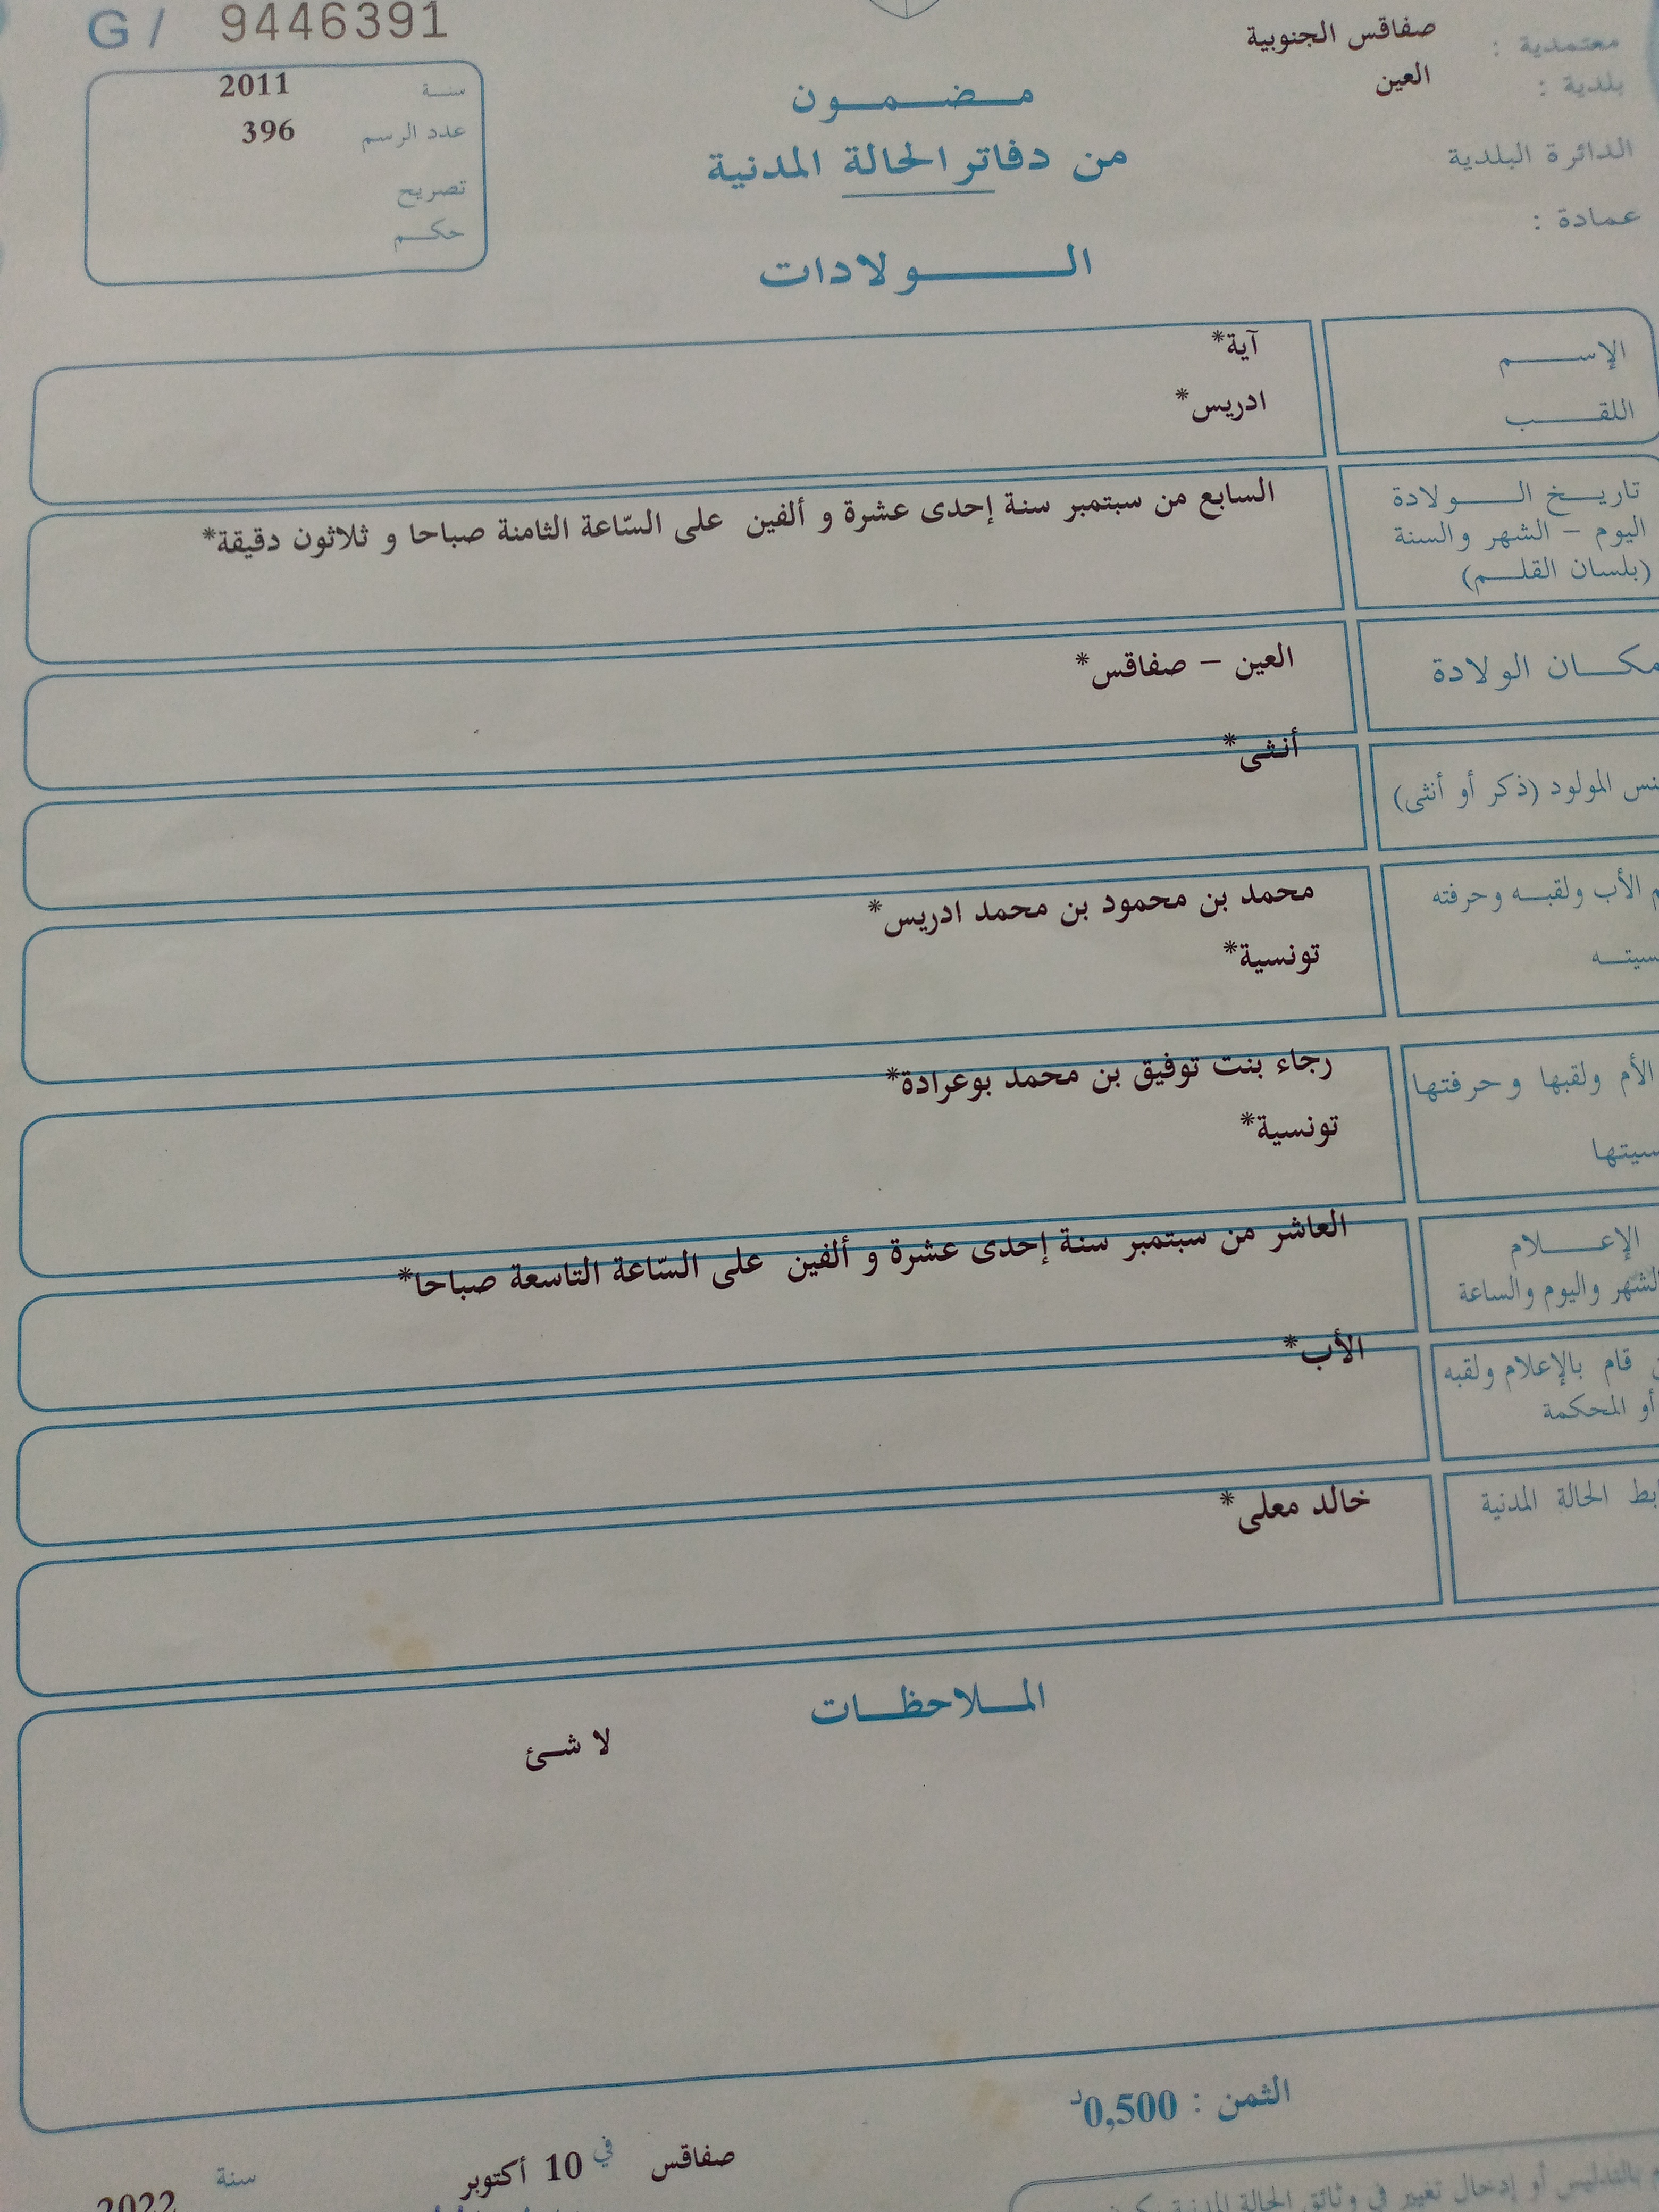 G / 9446391
معتمدية : صفاقس الجنوبية
بلدية : العين
الدائرة البلدية
عمادة :
سنة 2011
عدد الرسم 396
تصريح
حكم
مضمون
من دفاتر الحالة المدنية
الولادات
الإسم آية*
اللقب ادريس*
تاريخ الولادة
اليوم – الشهر والسنة
(بلسان القلم)
السابع من سبتمبر سنة إحدى عشرة و ألفين على السّاعة الثامنة صباحا و ثلاثون دقيقة*
مكان الولادة
العين – صفاقس*
المولود (ذكر أو أنثى)
أنثى*
الأب ولقبه وحرفته
محمد بن محمود بن محمد ادريس*
تونسية*
الأم ولقبها وحرفتها
رجاء بنت توفيق بن محمد بوعرادة*
تونسية*
الإعلام
الشهر واليوم والساعة
العاشر من سبتمبر سنة إحدى عشرة و ألفين على السّاعة التاسعة صباحا*
قام بالإعلام ولقبه
أو المحكمة
الأب*
الحالة المدنية
خالد معلى*
الملاحظات
لا شئ
الثمن : 0,500د
صفاقس في 10 أكتوبر سنة 2022
بالتدليس أو إدخال تغيير في وثائق الحالة المدنية